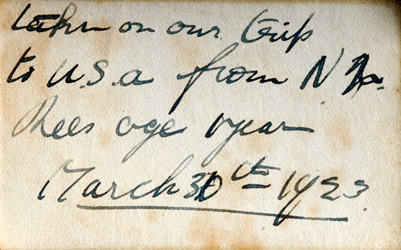 taken on our trip
to U.S.a from N Z.
Rees age 1 year
March 30th 1923